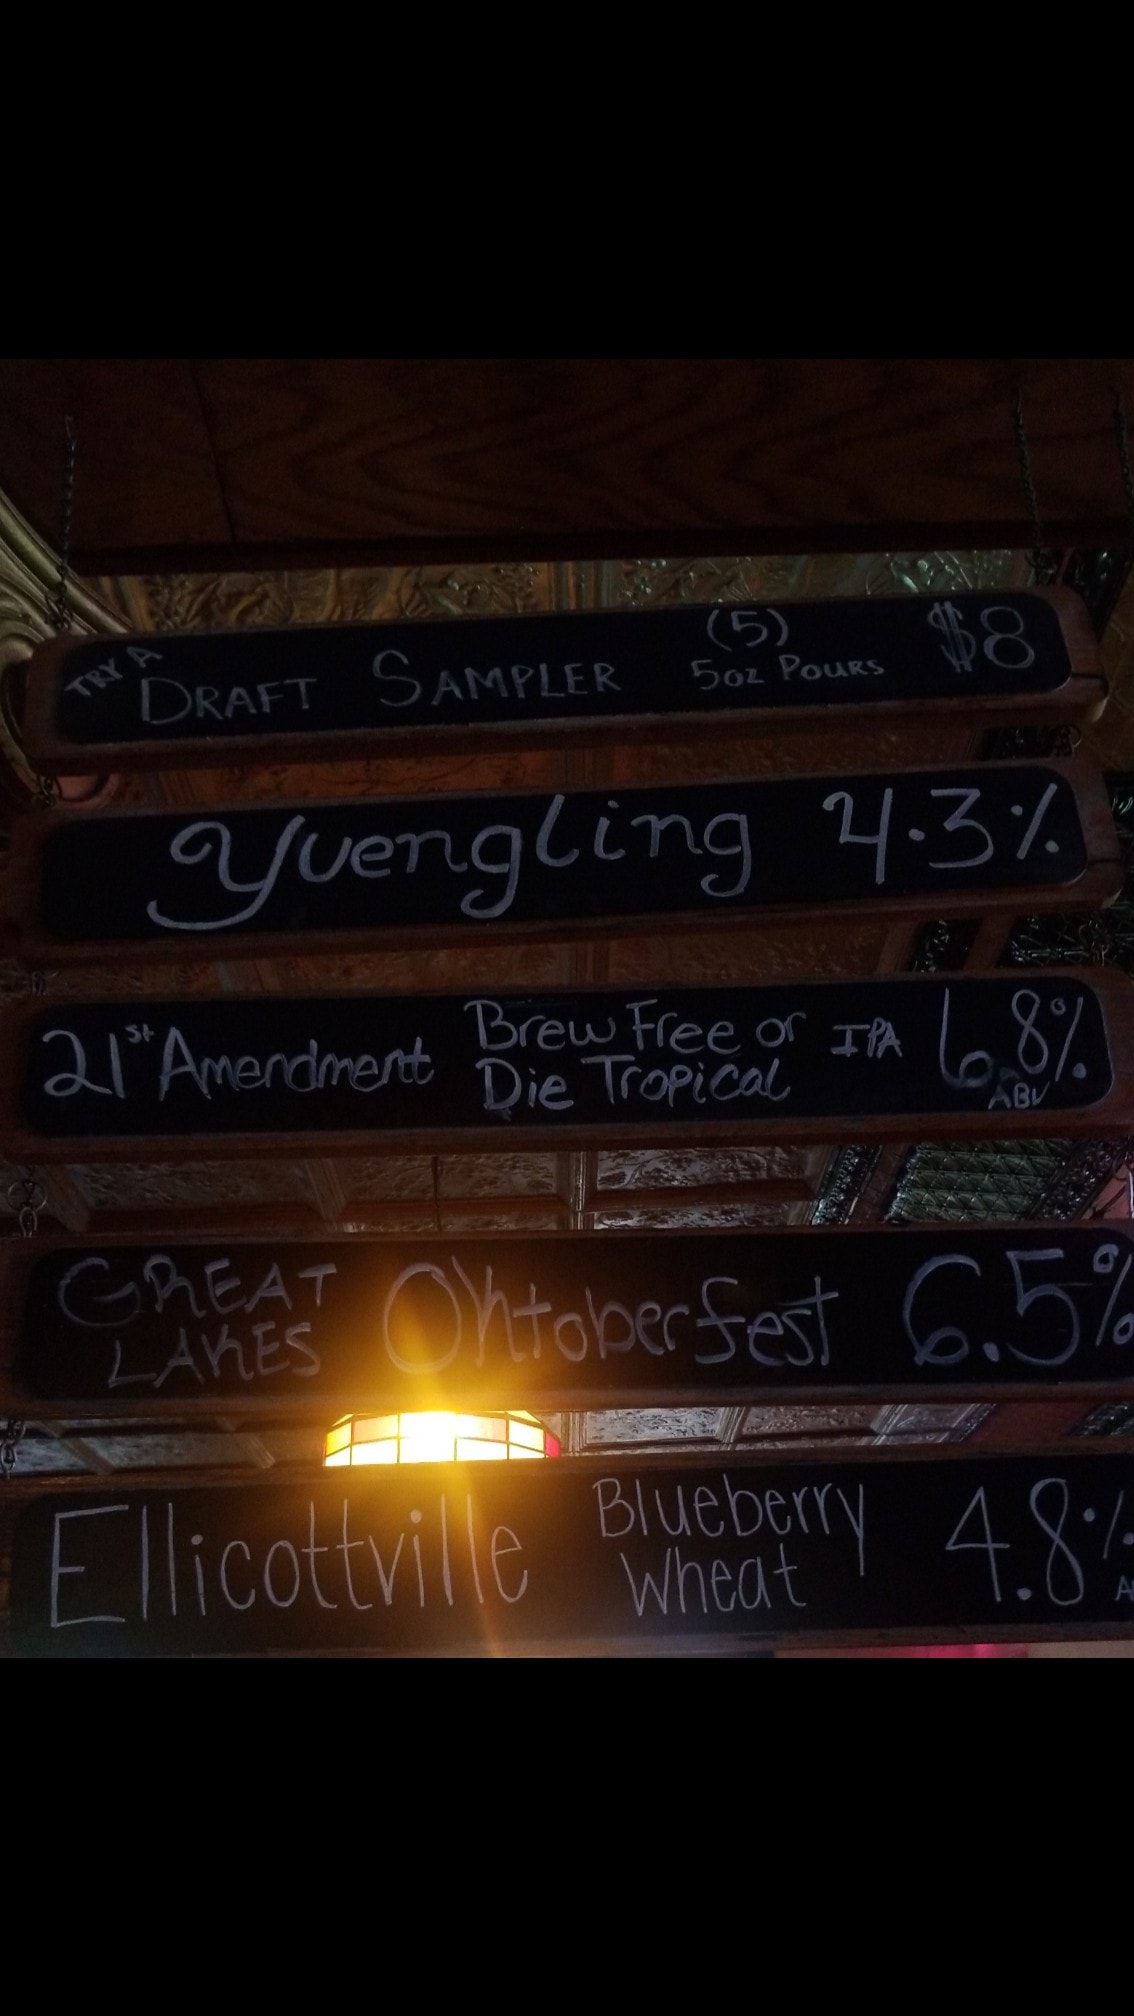 TRY A
DRAFT SAMPLER (5) 5oz POURS $8
Yuengling 4.3%
21st Amendment Brew Free or Die Tropical IPA 6.8% ABV
GREAT LAKES Oktoberfest 6.5%
Ellicottville Blueberry Wheat 4.8%